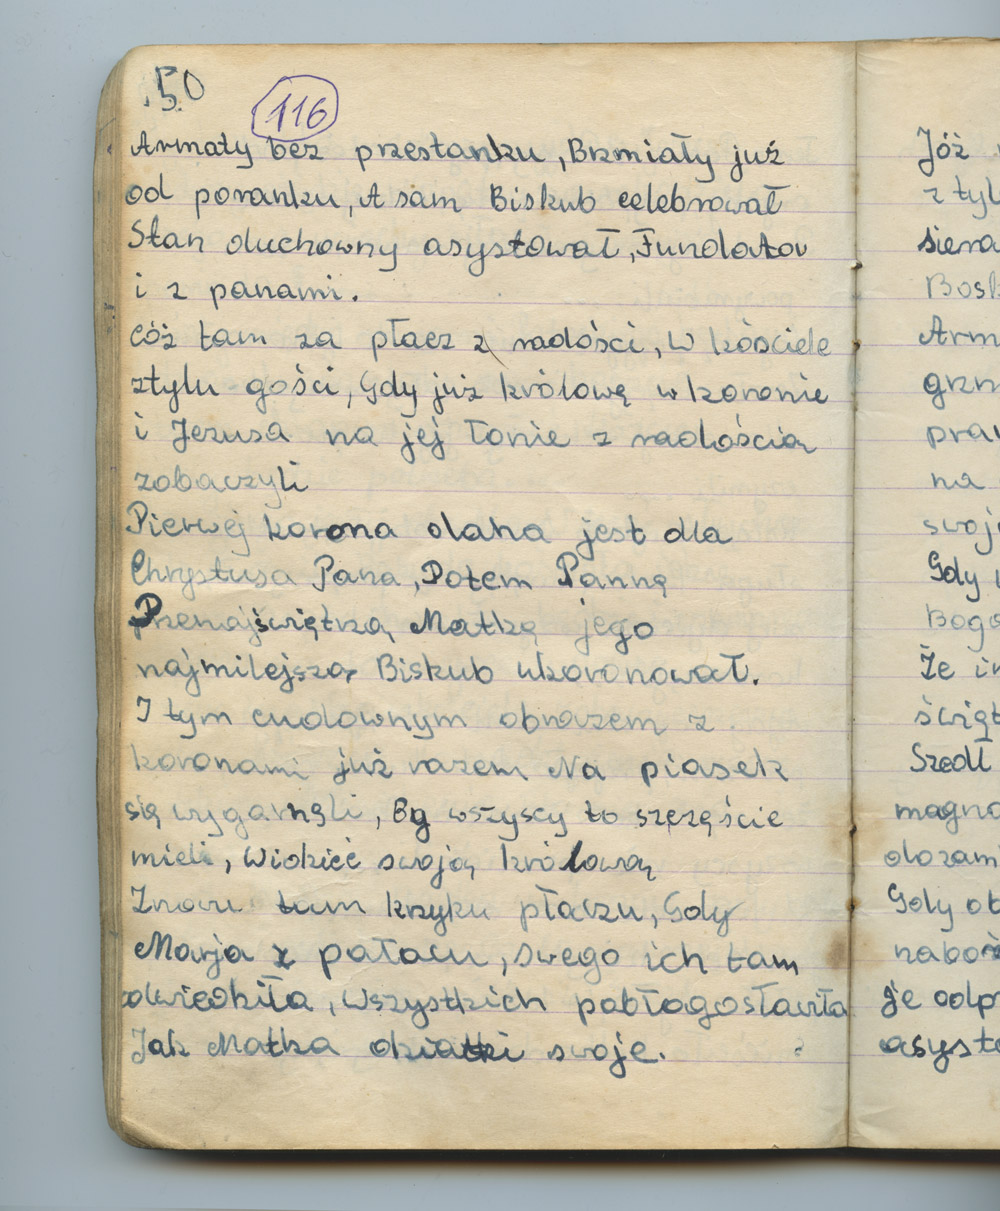 .50
116
Armaty bez przestanku, Brzmiały już
od poranku, A sam Biskub celebrował
Stan duchowny asystował, Fundator
i z panami.
Cóż tam za płacz z radości, W kościele
ztylu gości, Gdy już królowę w koronie
i Jezusa na jej łonie z radością
zobaczyli
Pierwej korona dana jest dla
Chrystusa Pana, Potem Pannę
Przenajświętrzą, Matkę jego
najmilejszą Biskub ukoronował.
I tym cudownym obrazem z
koronami już razem Na piasek
się wygarnęli, By wszyscy to szczęście
mieli, Widzieć swoją królową
Znowu tam krzyku płaczu, Gdy
Marja z pałacu, swego ich tam
odwiedziła, Wszystkich pobłogosławiła
Jak Matka dziatki swoje.
Jóż
z tyl
siera
Bosk
Arm
grzm
praw
na
swoj
Gdy
Bogo
Że
święt
Szedł
magna
dozami
Gdy ob
naboż
je odpr
asysto